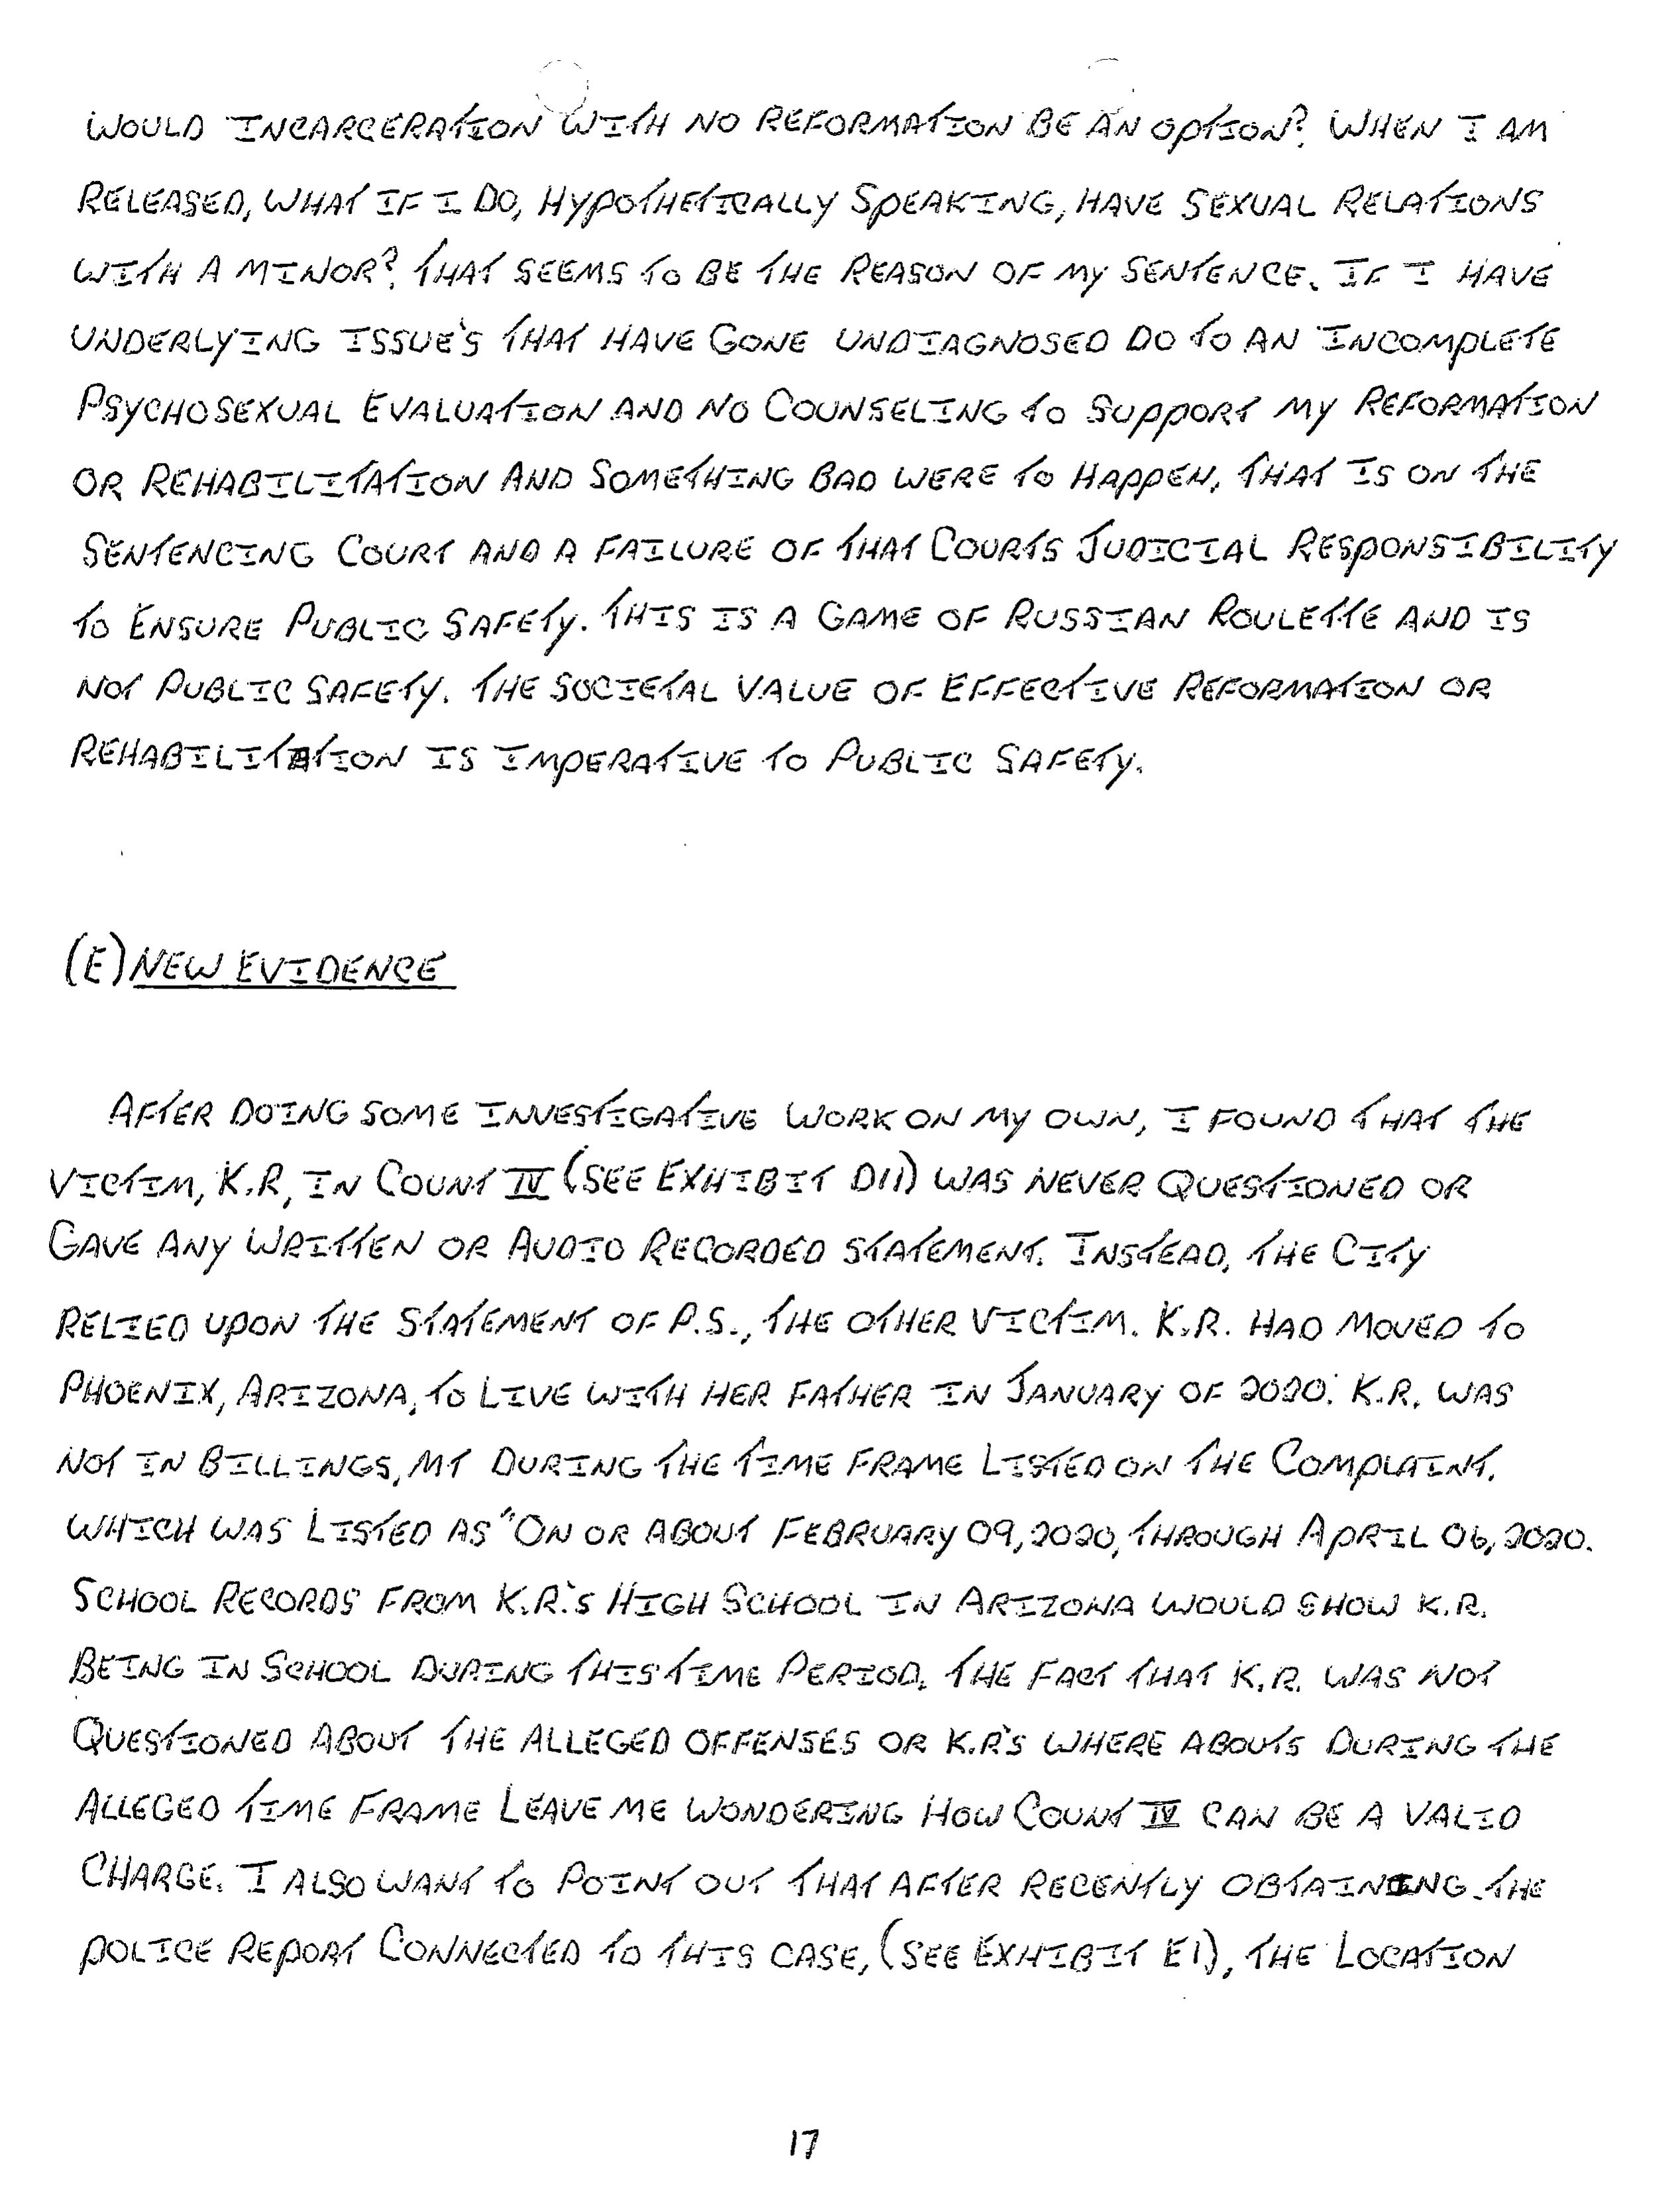 WOULD INCARCERATION WITH NO REFORMATION BE AN OPTION? WHEN I AM
RELEASED, WHAT IF I DO, HYPOTHETICALLY SPEAKING, HAVE SEXUAL RELATIONS
WITH A MINOR? THAT SEEMS TO BE THE REASON OF MY SENTENCE. IF I HAVE
UNDERLYING ISSUE'S THAT HAVE GONE UNDIAGNOSED DO TO AN INCOMPLETE
PSYCHOSEXUAL EVALUATION AND NO COUNSELING TO SUPPORT MY REFORMATION
OR REHABILITATION AND SOMETHING BAD WERE TO HAPPEN, THAT IS ON THE
SENTENCING COURT AND A FAILURE OF THAT COURTS JUDICIAL RESPONSIBILITY
TO ENSURE PUBLIC SAFETY. THIS IS A GAME OF RUSSIAN ROULETTE AND IS
NOT PUBLIC SAFETY. THE SOCIETAL VALUE OF EFFECTIVE REFORMATION OR
REHABILITATION IS IMPERATIVE TO PUBLIC SAFETY.
(E) NEW EVIDENCE
AFTER DOING SOME INVESTIGATIVE WORK ON MY OWN, I FOUND THAT THE
VICTIM, K.R, IN COUNT IV (SEE EXHIBIT D11) WAS NEVER QUESTIONED OR
GAVE ANY WRITTEN OR AUDIO RECORDED STATEMENT. INSTEAD, THE CITY
RELIED UPON THE STATEMENT OF P.S., THE OTHER VICTIM. K.R. HAD MOVED TO
PHOENIX, ARIZONA, TO LIVE WITH HER FATHER IN JANUARY OF 2020. K.R. WAS
NOT IN BILLINGS, MT DURING THE TIME FRAME LISTED ON THE COMPLAINT.
WHICH WAS LISTED AS "ON OR ABOUT FEBRUARY 09, 2020, THROUGH APRIL 06, 2020.
SCHOOL RECORDS FROM K.R.'S HIGH SCHOOL IN ARIZONA WOULD SHOW K.R.
BEING IN SCHOOL DURING THIS TIME PERIOD. THE FACT THAT K.R. WAS NOT
QUESTIONED ABOUT THE ALLEGED OFFENSES OR K.R'S WHERE ABOUTS DURING THE
ALLEGED TIME FRAME LEAVE ME WONDERING HOW COUNT IV CAN BE A VALID
CHARGE. I ALSO WANT TO POINT OUT THAT AFTER RECENTLY OBTAINING THE
POLICE REPORT CONNECTED TO THIS CASE, (SEE EXHIBIT E1), THE LOCATION
17